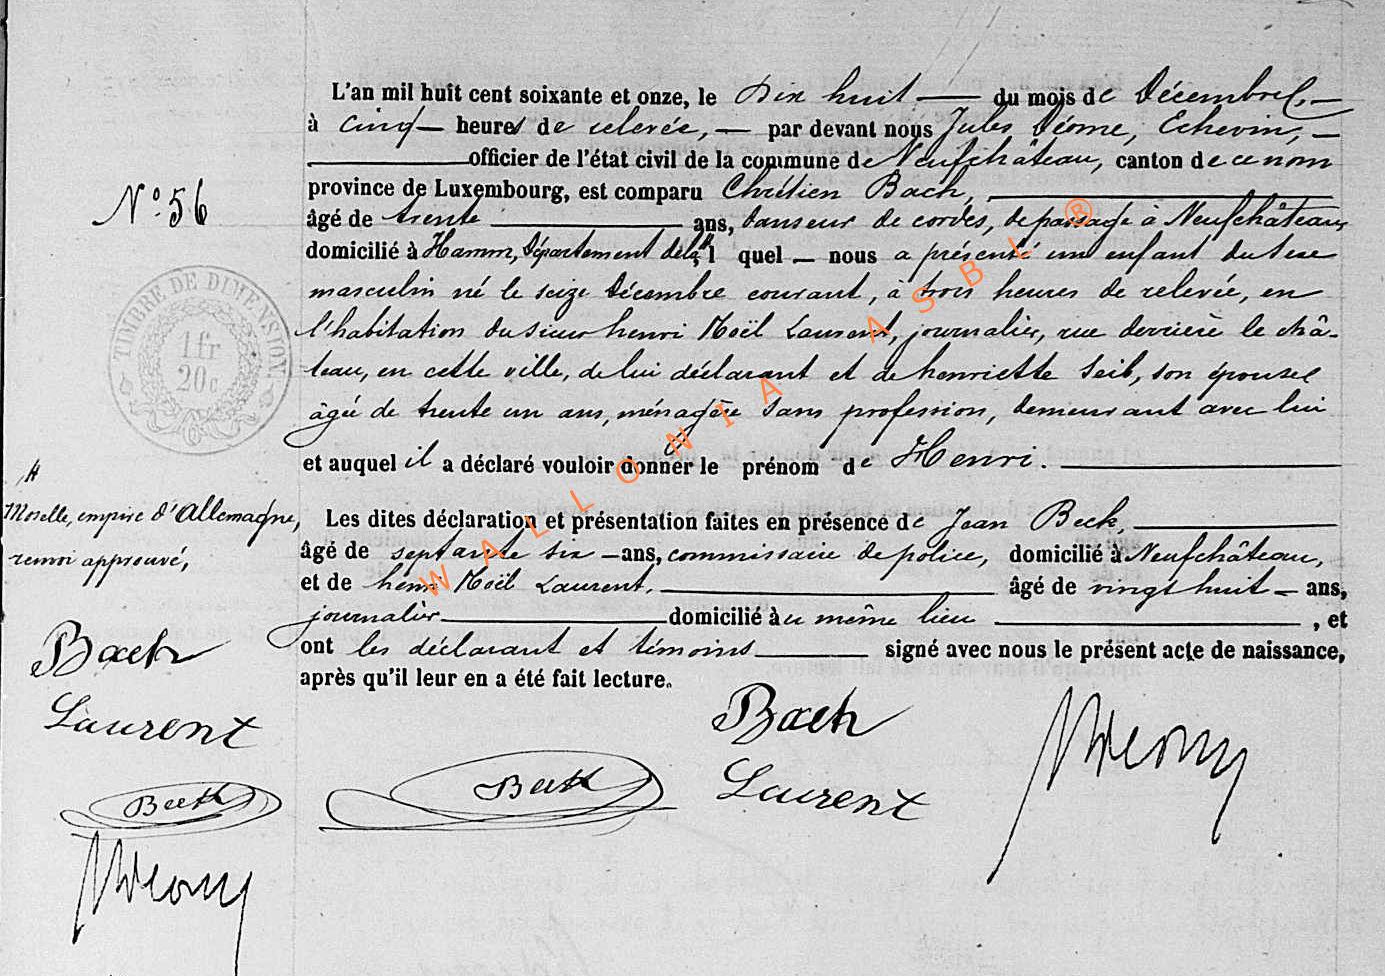 L'an mil huit cent soixante et onze, le Dix huit — du mois de Décembre, —
à cinq — heures de relevée, — par devant nous Jules Déome, Echevin, —
officier de l'état civil de la commune de Neufchâteau, canton de ce nom
province de Luxembourg, est comparu Chrétien Bach,
N° 56
âgé de trente ans, danseur de cordes, de passage à Neufchâteau,
domicilié à Hamm, Département de la # l quel — nous a présenté un enfant du sexe
masculin né le seize Décembre courant, à trois heures de relevée, en
l'habitation du sieur henri Noël Laurent, journalier, rue derrière le châ-
teau, en cette ville, de lui déclarant et de henriette Seib, son épouse
âgée de trente un ans, ménagère sans profession, demeurant avec lui
et auquel il a déclaré vouloir donner le prénom de Henri.
TIMBRE DE DIMENSION
1 fr
20 c
#
Moselle, empire d'Allemagne,
renvoi approuvé,
Les dites déclaration et présentation faites en présence de Jean Beck,
âgé de septante six — ans, commissaire de police, domicilié à Neufchâteau,
et de henri Noël Laurent, âgé de vingt huit — ans,
journalier domicilié au même lieu , et
ont les déclarant et témoins signé avec nous le présent acte de naissance,
après qu'il leur en a été fait lecture.
Bach
Laurent
Beck
JDeome
Bach
Laurent
Beck
JDeome
WALLONIA ASBL ®